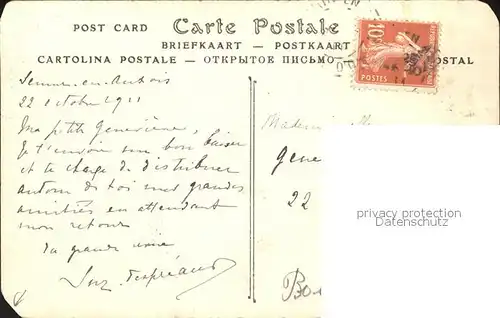 POST CARD Carte Postale
BRIEFKAART — POSTKAART
CARTOLINA POSTALE — ОТКРЫТОЕ ПИСЬМО
Semur-en-Auxois
22 octobre 1911
Ma petite Geneviève,
Je t'envoie un bon baiser
et te charge de distribuer
autour de toi mes grandes
amitiés en attendant
mon retour
Ta grande amie
Suz.
10
POSTES
Mademoiselle
Gene
22
privacy protection
Datenschutz